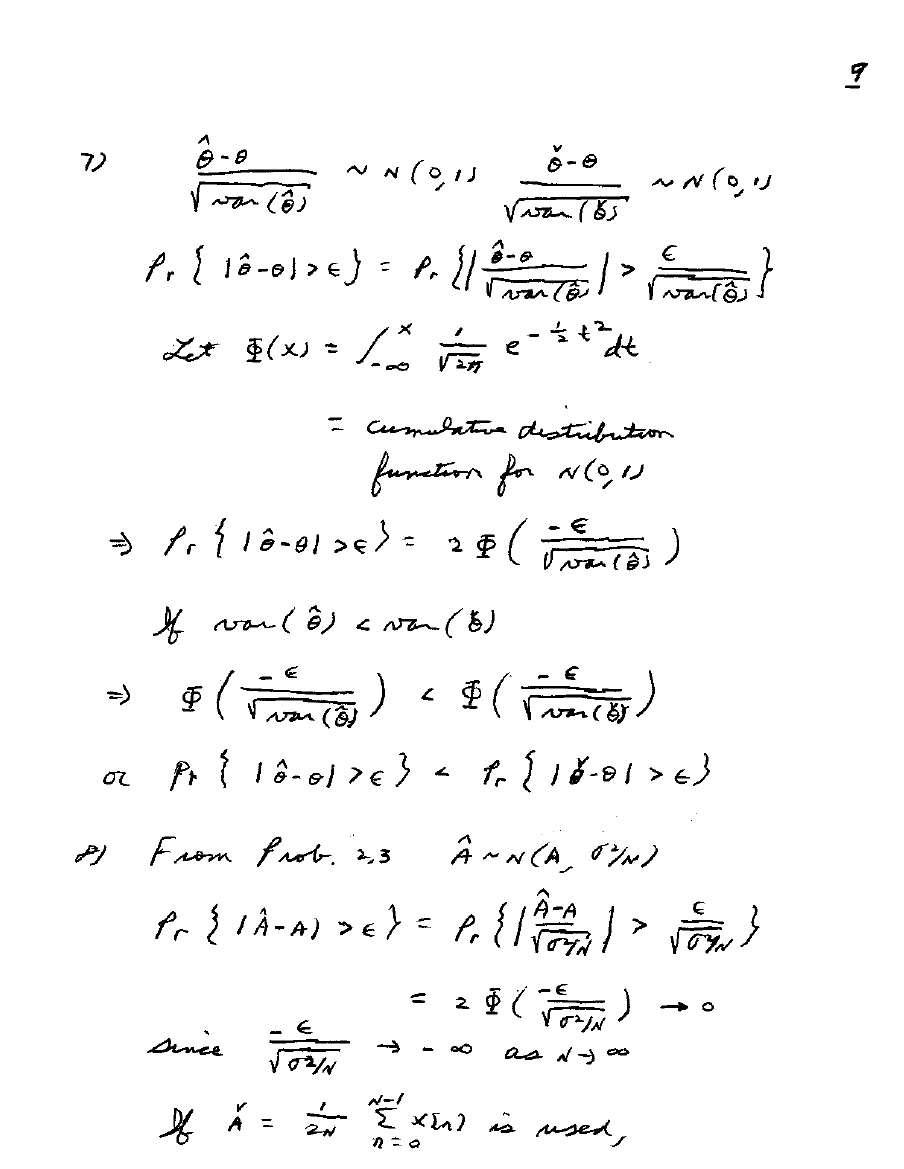 9
7) (θ̂-θ)/√var(θ̂) ~ N(0,1)   (θ̌-θ)/√var(θ̌) ~ N(0,1)
Pr { |θ̂-θ| > ε } = Pr { | (θ̂-θ)/√var(θ̂) | > ε/√var(θ̂) }
Let Φ(x) = ∫_{-∞}^{x} 1/√2π e^{-½t²} dt
= cumulative distribution
function for N(0,1)
⇒ Pr { |θ̂-θ| > ε } = 2 Φ ( -ε/√var(θ̂) )
If var(θ̂) < var(θ̌)
⇒ Φ ( -ε/√var(θ̂) ) < Φ ( -ε/√var(θ̌) )
or Pr { |θ̂-θ| > ε } < Pr { |θ̌-θ| > ε }
8) From Prob. 2.3 Â ~ N(A, σ²/N)
Pr { |Â-A| > ε } = Pr { | (Â-A)/√σ²/N | > ε/√σ²/N }
= 2 Φ ( -ε/√σ²/N ) → 0
since -ε/√σ²/N → -∞ as N → ∞
If Ǎ = 1/2N Σ_{n=0}^{N-1} x[n] is used,